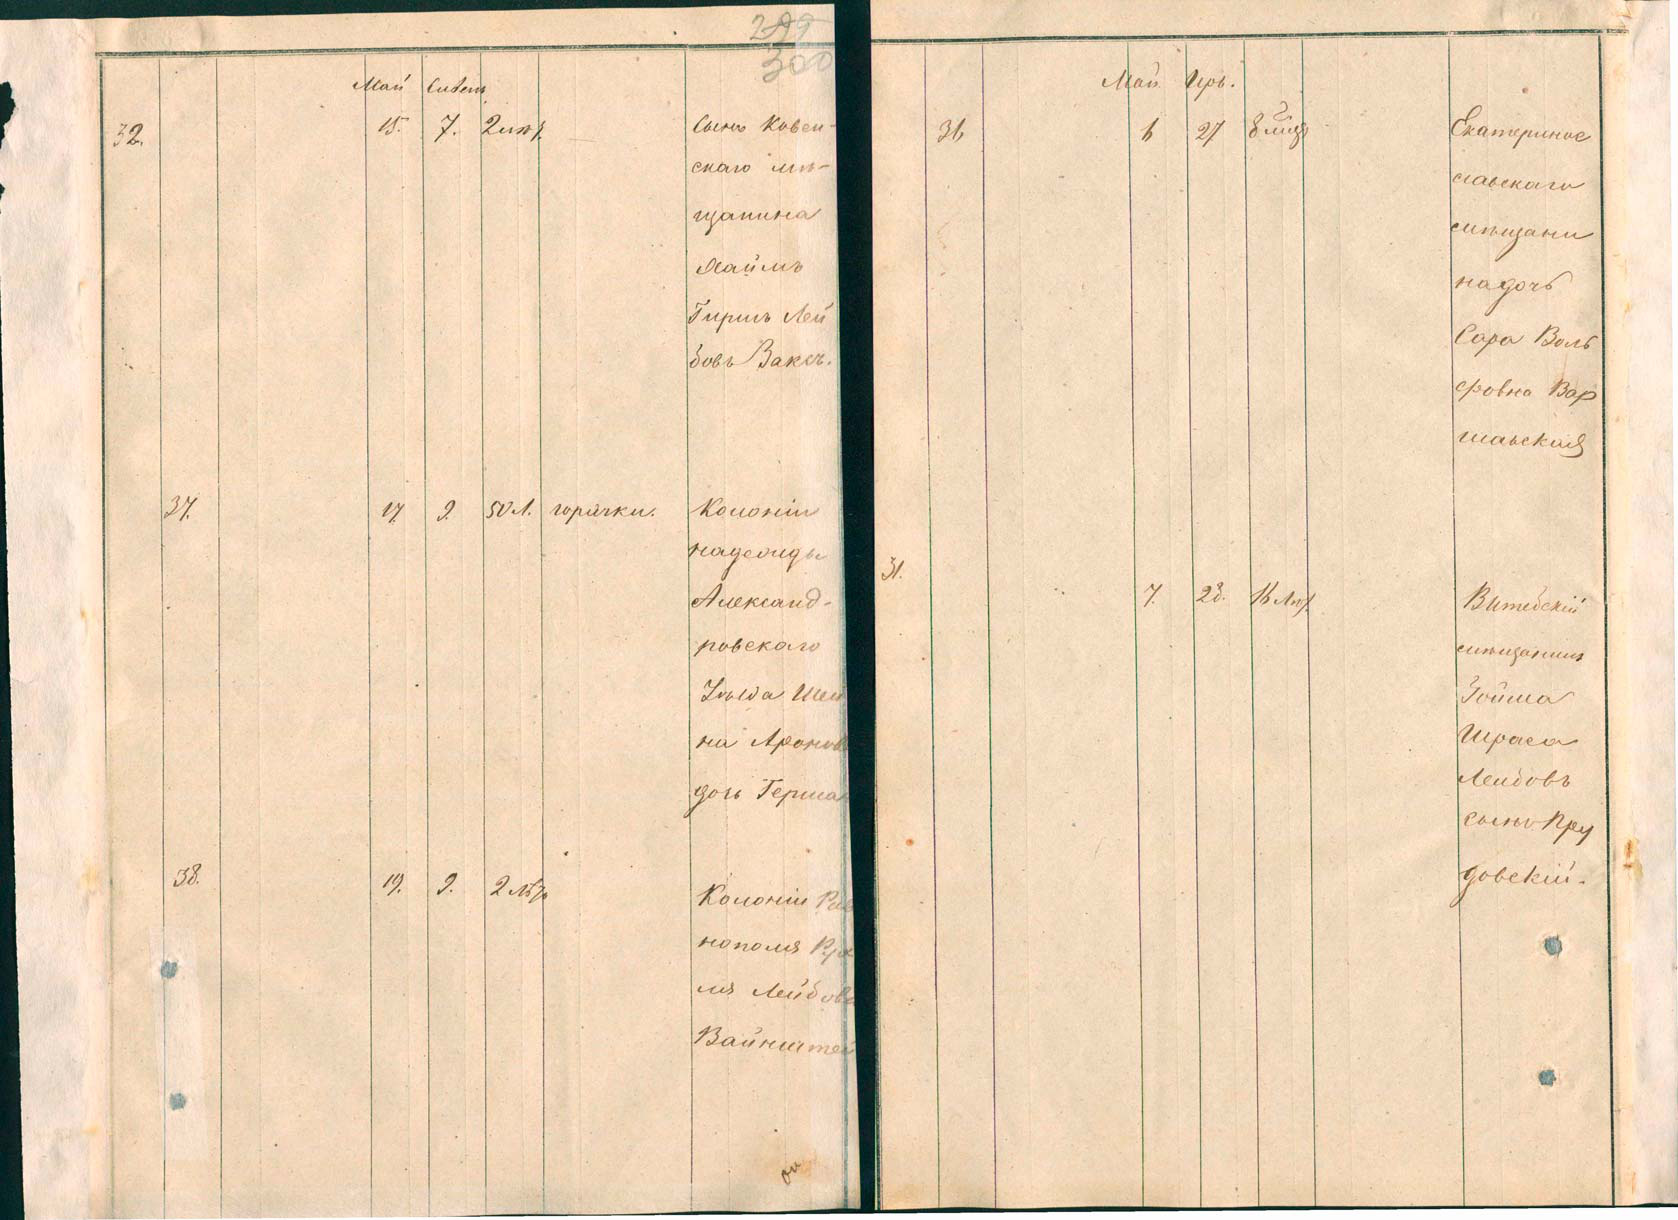 299
300
Май Сивень
32. 15. 7. 2 лѣт.
Сынъ Ковен-
скаго мѣ-
щанина
Хаимъ
Гиршъ Лей
бовъВаксъ.
37. 17. 9. 50 л. горячки.
Колоніи
надежды
Александ-
ровскаго
Шей
на Аронова
дочь Герман
38. 19. 9. 2 лѣтъ
Колоніи Рав
нополя Рух
ля Лейбова
Вайнштей
Май Иръ.
36 6 27 8 мѣц
Екатеринос
лавскаго
мѣщани
на дочь
Сара Воль
фовна Вар
шавская
31. 7. 28. 16 лѣт
Витебскій
мѣщанинъ
Лейбовъ
сынъ Пру
довскій.